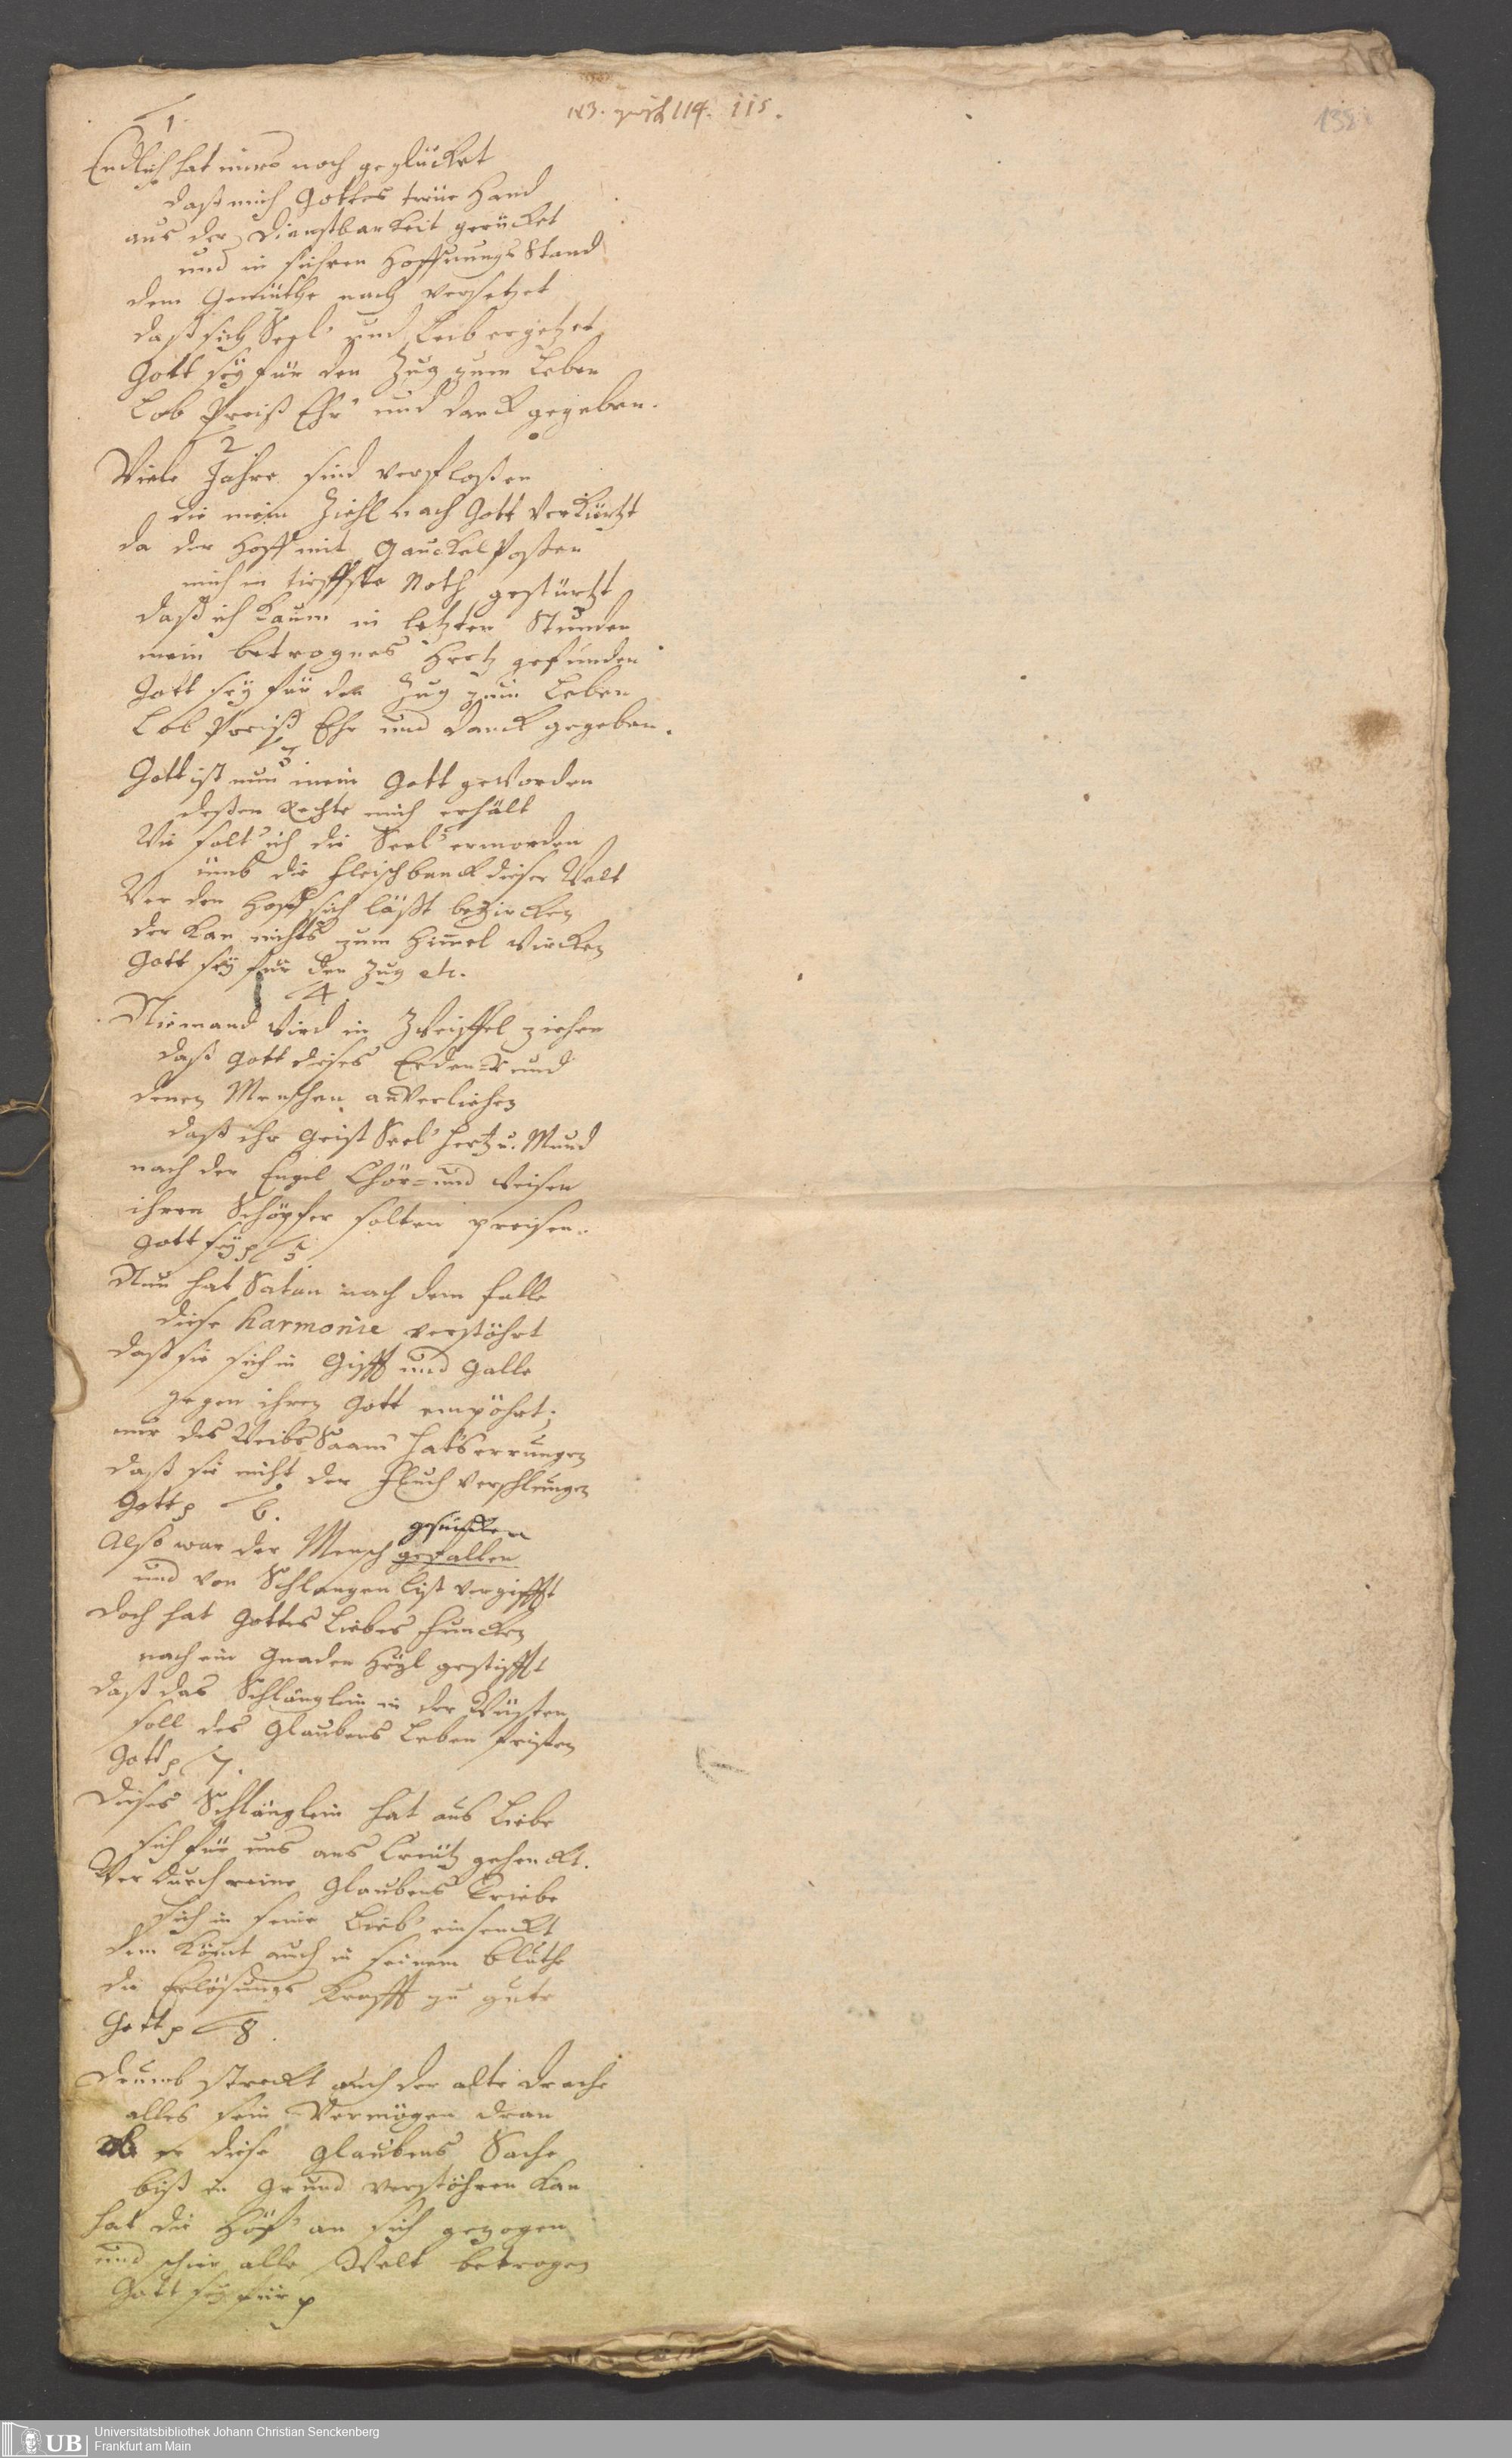 113. 114. 115.
135
1.
Endlich hat mirs noch geglücket
daß mich Gottes treüe Hand
aus der Dienstbarkeit gerücket
und in sichren Hoffnungs Stand
dem Gemüthe nach versetzet
daß sich Seel' und Leib ergetzet
Gott seÿ für den Zug zum Leben
Lob Preiß Ehr' und danck gegeben.
2
Viele Jahre sind verfloßen
die mein Ziehl nach Gott verkürtzt
da der Hoff mit Gauckel Poßen
mich in tieffste Noth gestürtzt
daß ich kaum in letzten Stunden
mein betrognes Hertz gefunden
Gott seÿ für den Zug zum Leben
Lob Preiß Ehr und danck gegeben.
3
Gott ist nun mein Gott geworden
deßen Rechte mich erhält
Wie solt' ich die Seel' ermorden
umb die fleischbanck dieser Welt
Wer den Hoff sich läßt bezircken
der kan nichts zum Him̃el wircken
Gott seÿ für den Zug etc.
4.
Niemand wird in Zweiffel ziehen
daß Gott dieses Erden-Rund
denen Menschen anverliehen
daß ihr Geist Seel' Hertz u. Mund
nach der Engel Chör- und weisen
ihren Schöpfer solten preisen.
Gott seÿ p 5
Nun hat Satan nach dem falle
diese Harmonie verstöhrt
daß sie sich in Gifft und Galle
gegen ihren Gott empöhrt;
nur des Weibs Saam' hats errungen
daß sie nicht der Fluch verschlungen
Gott p 6.
gesuncken
Also war der Mensch gefallen
und von Schlangen list vergifft
doch hat Gottes Liebes Funcken
noch ein Gnaden Heÿl gestifft
daß das Schlänglein in der Wüsten
soll des Glaubens Leben fristen
Gott p 7.
Dieses Schlänglein hat aus Liebe
sich für uns ans Creutz gehenckt.
Wer durch reine Glaubens Triebe
sich in seine Lieb' einsenckt
dem kömt auch in seinem Bluthe
die Erlösungs Krafft zu gute
Gott p 8.
Drumb streckt auch der alte drache
alles sein Vermögen dran
ob er diese Glaubens Sache
biß in Grund verstöhren kan
hat die Höf' an sich gezogen
und schier alle Welt betrogen
Gott seÿ für p
UB
Universitätsbibliothek Johann Christian Senckenberg
Frankfurt am Main